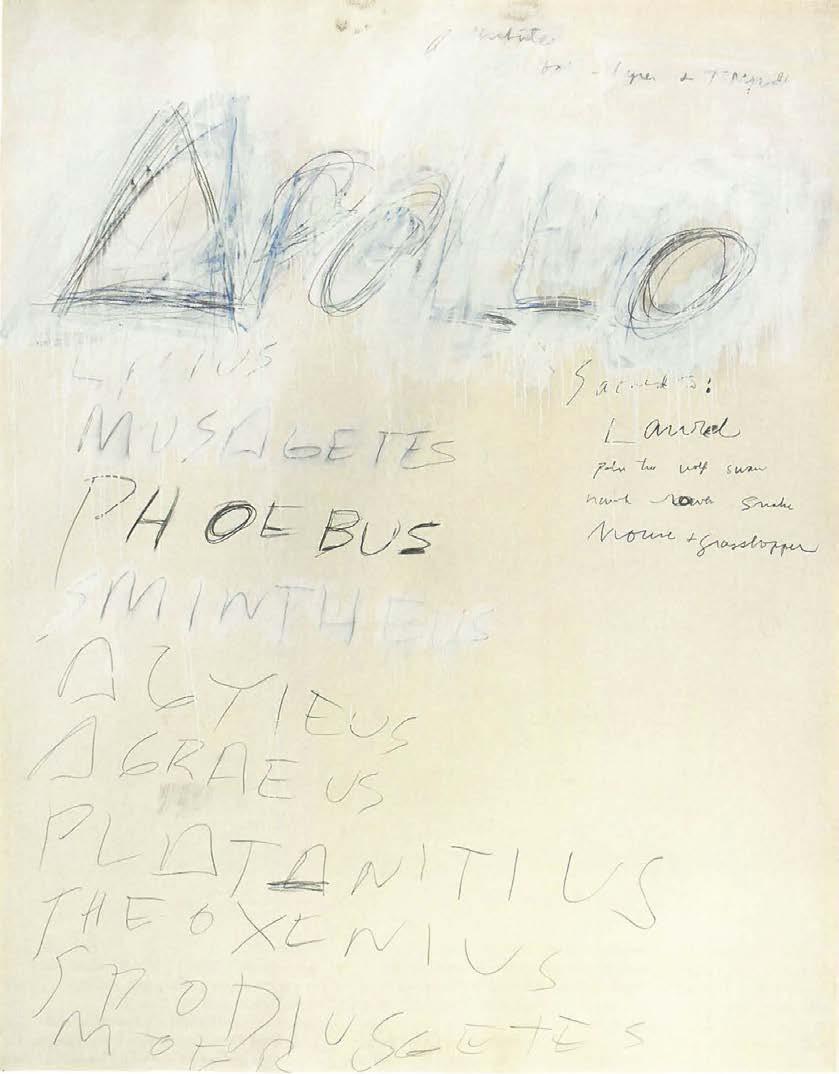 APOLLO
MUSAGETES
PHOEBUS
SMINTHEUS
AGYIEUS
AGRAEUS
PLATANITIUS
THEOXENIUS
SPODIUS
MOERUSGETES
Sacred to:
Laurel
palm tree wolf swan
hawk raven snake
Mouse + grasshopper